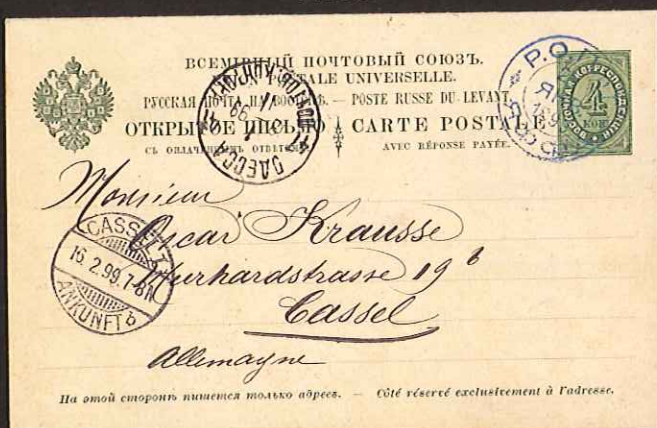 ВСЕМІРНЫЙ ПОЧТОВЫЙ СОЮЗЪ.
POSTALE UNIVERSELLE.
РУССКАЯ ПОЧТА НА ВОСТОКѢ. — POSTE RUSSE DU LEVANT.
ОТКРЫТОЕ ПИСЬМО CARTE POSTALE
СЪ ОПЛАЧЕННЫМЪ ОТВѢТОМЪ. AVEC RÉPONSE PAYÉE.
Р.О.
ЯН
ВОСТОЧНАЯ КОРРЕСПОНДЕНЦІЯ
4
КОП
ОДЕССА
Monsieur
Oscar Krausse
Murhardstrasse 19 b
Cassel
Allemagne
CASSEL
16.2.99.7-8N
ANKUNFT b
На этой сторонѣ пишется только адресъ. — Côté réservé exclusivement à l'adresse.